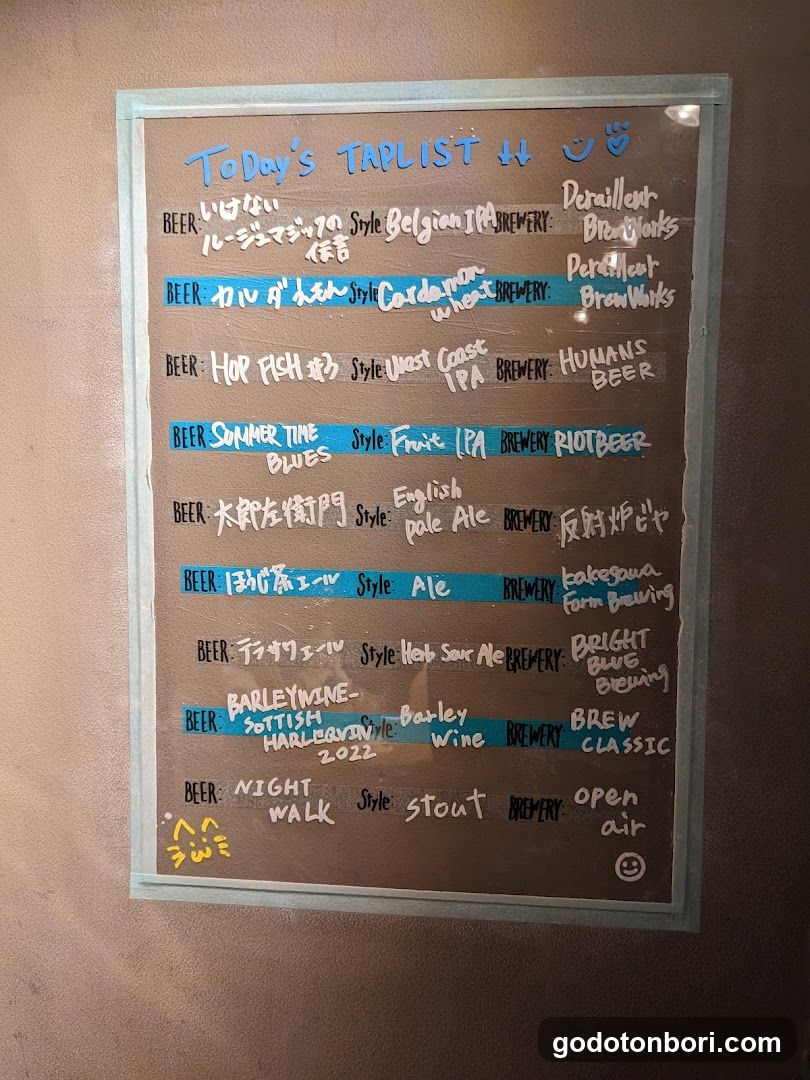 ToDay's TAPLIST ↓↓
BEER: いけない ルージュマジックの 伝言 Style Belgian IPA BREWERY: Derailleur BrewWorks
BEER: カルダモン Style Cardamon wheat BREWERY: Derailleur BrewWorks
BEER: HOP FISH #3 Style: West Coast IPA BREWERY: HUMANS BEER
BEER SUMMER TIME BLUES Style: Fruit IPA BREWERY: RIOTBEER
BEER: 太郎左衛門 Style: English pale Ale BREWERY: 反射炉ビヤ
BEER: ほうじ茶エール Style: Ale BREWERY: kakegawa Farm Brewing
BEER: テラサワエール Style: Herb Sour Ale BREWERY: BRIGHT BLUE Brewing
BEER: BARLEYWINE- SOTTISH HARLEQVIN 2022 Style: Barley Wine BREWERY: BREW CLASSIC
BEER: NIGHT WALK Style: stout BREWERY: open air
godotonbori.com